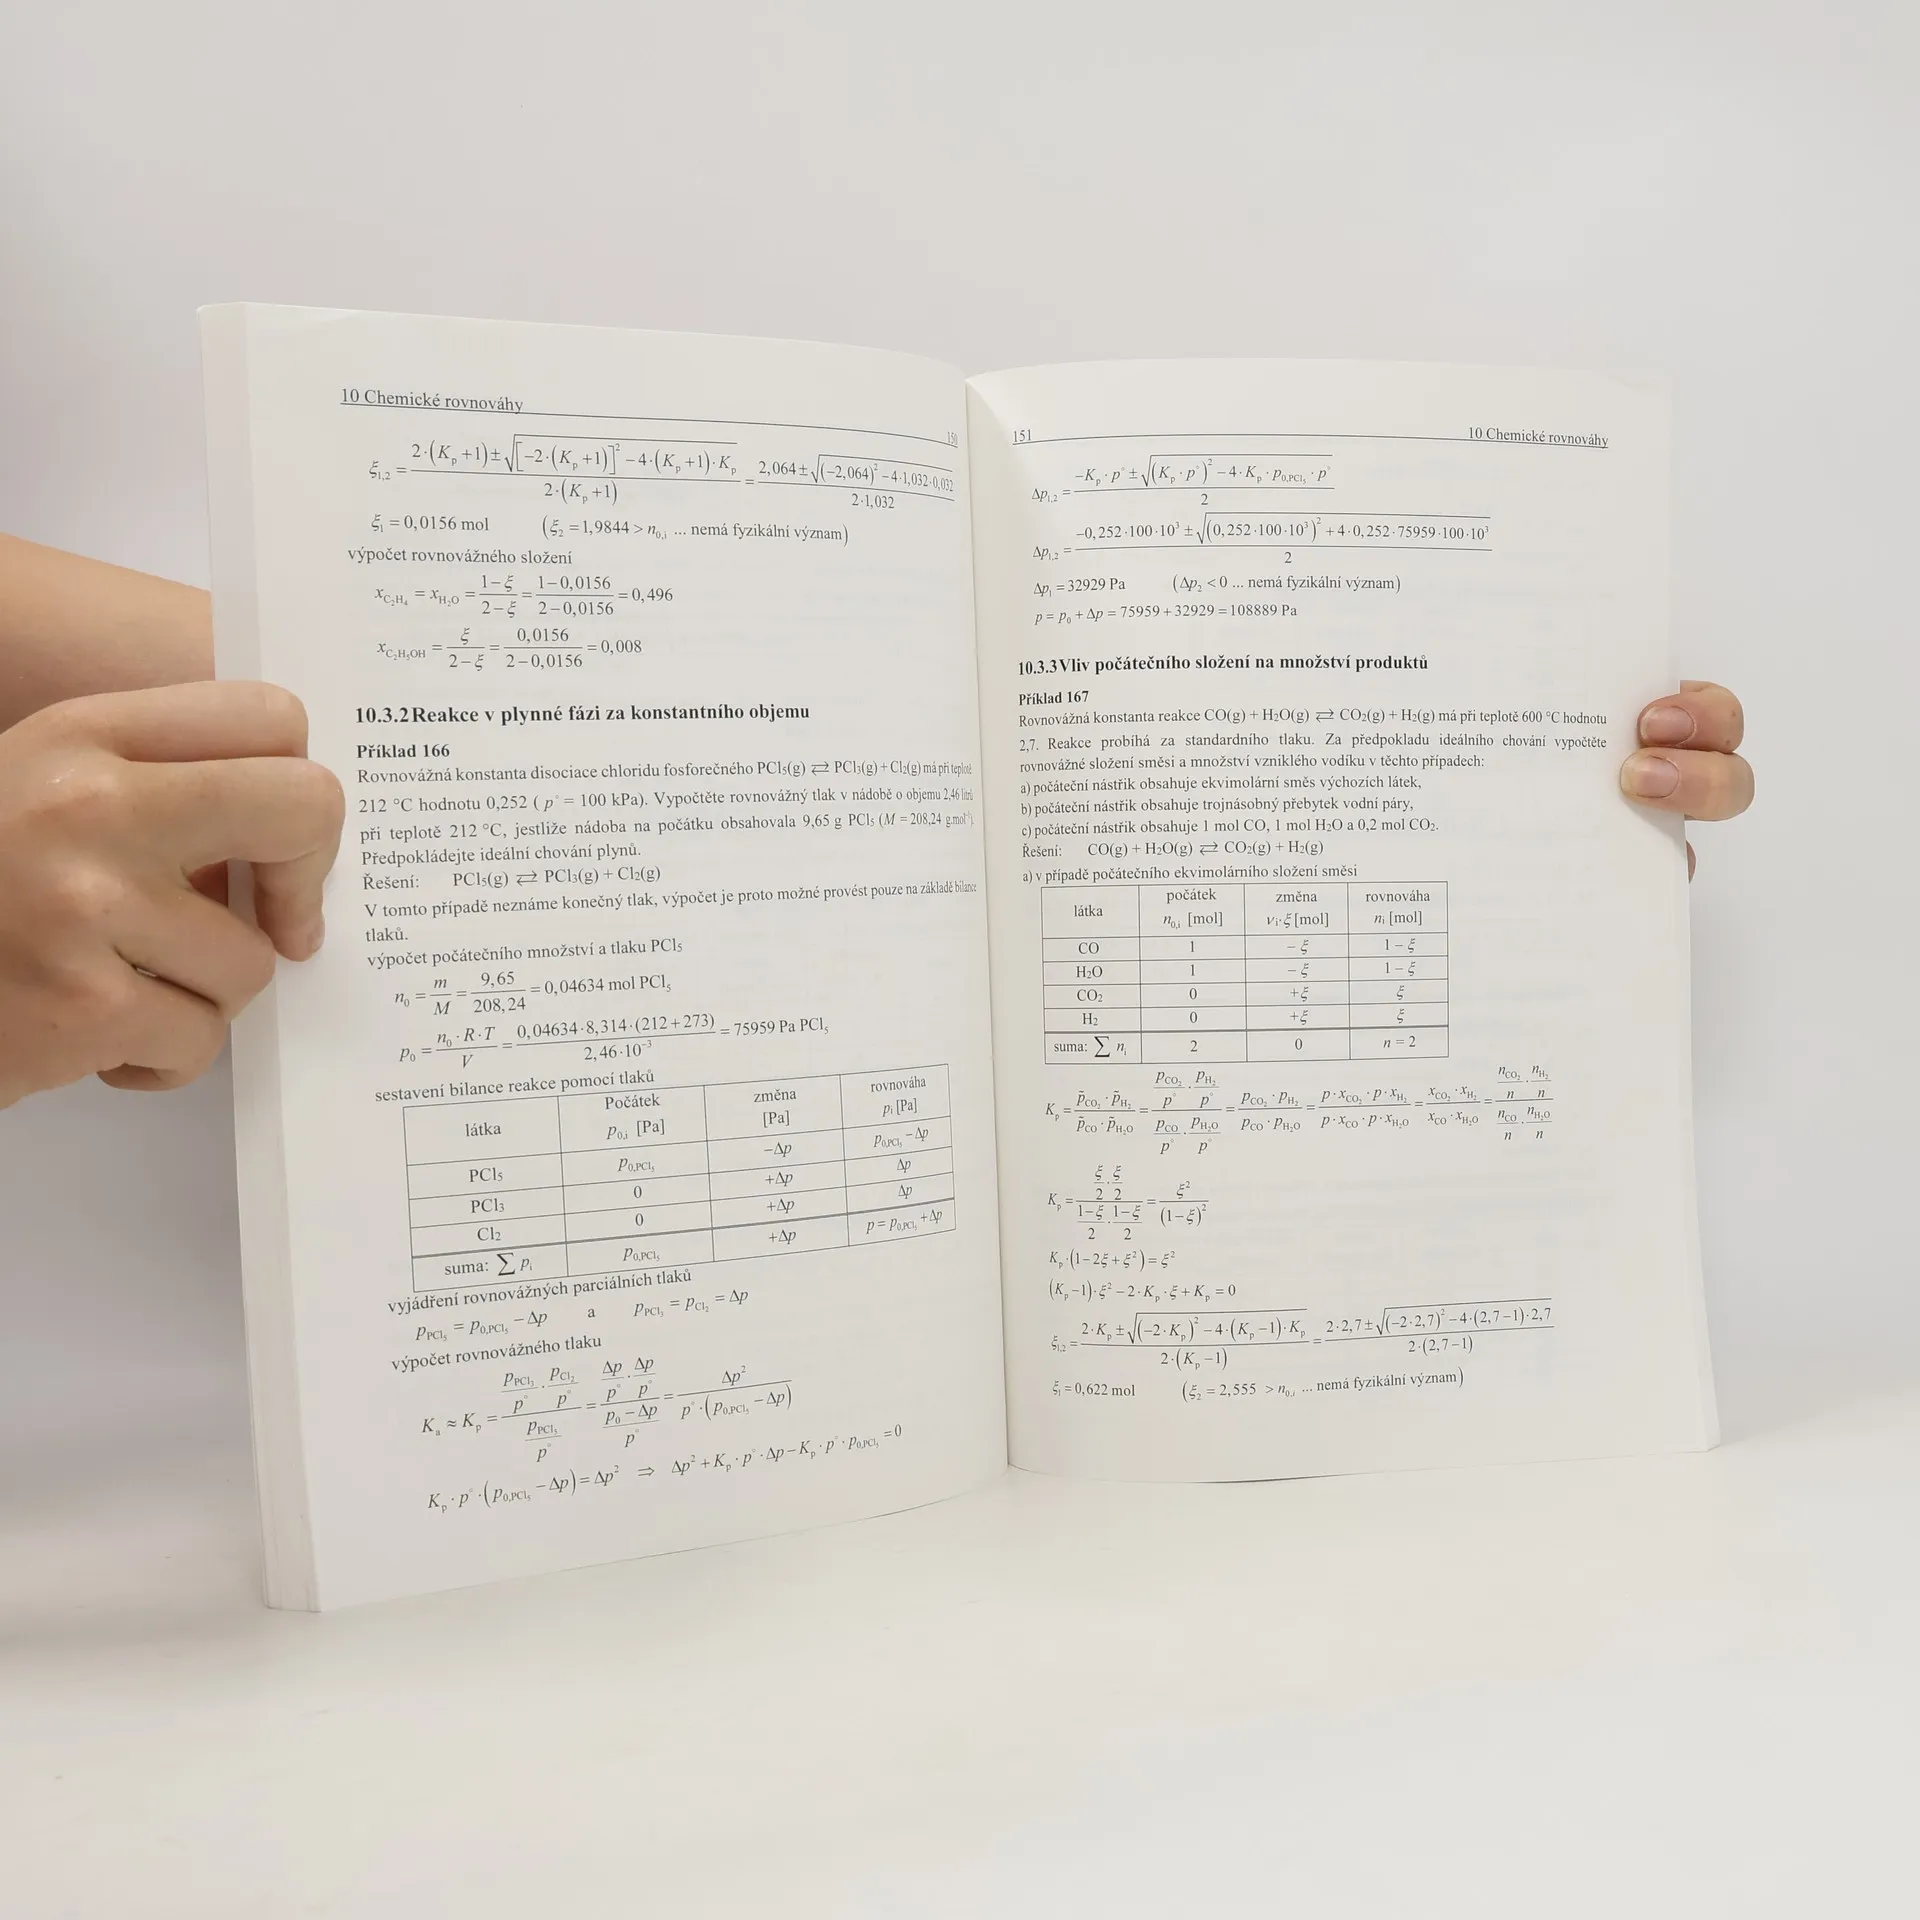 10 Chemické rovnováhy
150
ξ₁,₂ = (2·(Kₚ+1) ± √([−2·(Kₚ+1)]² − 4·(Kₚ+1)·Kₚ)) / (2·(Kₚ+1)) = (2,064 ± √((−2,064)² − 4·1,032·0,032)) / (2·1,032)
ξ₁ = 0,0156 mol (ξ₂ = 1,9844 > n₀,ᵢ ... nemá fyzikální význam)
výpočet rovnovážného složení
x_C₂H₄ = x_H₂O = (1−ξ)/(2−ξ) = (1−0,0156)/(2−0,0156) = 0,496
x_C₂H₅OH = ξ/(2−ξ) = 0,0156/(2−0,0156) = 0,008
10.3.2 Reakce v plynné fázi za konstantního objemu
Příklad 166
Rovnovážná konstanta disociace chloridu fosforečného PCl₅(g) ⇄ PCl₃(g) + Cl₂(g) má při teplotě
212 °C hodnotu 0,252 ( p° = 100 kPa). Vypočtěte rovnovážný tlak v nádobě o objemu 2,46 litrů
při teplotě 212 °C, jestliže nádoba na počátku obsahovala 9,65 g PCl₅ (M = 208,24 g.mol⁻¹).
Předpokládejte ideální chování plynů.
Řešení: PCl₅(g) ⇄ PCl₃(g) + Cl₂(g)
V tomto případě neznáme konečný tlak, výpočet je proto možné provést pouze na základě bilance
tlaků.
výpočet počátečního množství a tlaku PCl₅
n₀ = m/M = 9,65/208,24 = 0,04634 mol PCl₅
p₀ = (n₀·R·T)/V = (0,04634·8,314·(212+273))/(2,46·10⁻³) = 75959 Pa PCl₅
sestavení bilance reakce pomocí tlaků
látka Počátek p₀,ᵢ [Pa] změna [Pa] rovnováha pᵢ [Pa]
PCl₅ p₀,PCl₅ −Δp p₀,PCl₅ − Δp
PCl₃ 0 +Δp Δp
Cl₂ 0 +Δp Δp
suma: ∑ pᵢ p₀,PCl₅ +Δp p = p₀,PCl₅ + Δp
vyjádření rovnovážných parciálních tlaků
p_PCl₅ = p₀,PCl₅ − Δp a p_PCl₃ = p_Cl₂ = Δp
výpočet rovnovážného tlaku
Kₐ ≈ Kₚ = ((p_PCl₃/p°)·(p_Cl₂/p°))/(p_PCl₅/p°) = ((Δp/p°)·(Δp/p°))/((p₀−Δp)/p°) = Δp²/(p°·(p₀,PCl₅ − Δp))
Kₚ·p°·(p₀,PCl₅ − Δp) = Δp² ⇒ Δp² + Kₚ·p°·Δp − Kₚ·p°·p₀,PCl₅ = 0
151
10 Chemické rovnováhy
Δp₁,₂ = (−Kₚ·p° ± √((Kₚ·p°)² − 4·Kₚ·p₀,PCl₅·p°))/2
Δp₁,₂ = (−0,252·100·10³ ± √((0,252·100·10³)² + 4·0,252·75959·100·10³))/2
Δp₁ = 32929 Pa (Δp₂ < 0 ... nemá fyzikální význam)
p = p₀ + Δp = 75959 + 32929 = 108889 Pa
10.3.3 Vliv počátečního složení na množství produktů
Příklad 167
Rovnovážná konstanta reakce CO(g) + H₂O(g) ⇄ CO₂(g) + H₂(g) má při teplotě 600 °C hodnotu
2,7. Reakce probíhá za standardního tlaku. Za předpokladu ideálního chování vypočtěte
rovnovážné složení směsi a množství vzniklého vodíku v těchto případech:
a) počáteční nástřik obsahuje ekvimolární směs výchozích látek,
b) počáteční nástřik obsahuje trojnásobný přebytek vodní páry,
c) počáteční nástřik obsahuje 1 mol CO, 1 mol H₂O a 0,2 mol CO₂.
Řešení: CO(g) + H₂O(g) ⇄ CO₂(g) + H₂(g)
a) v případě počátečního ekvimolárního složení směsi
látka počátek n₀,ᵢ [mol] změna νᵢ·ξ [mol] rovnováha nᵢ [mol]
CO 1 −ξ 1−ξ
H₂O 1 −ξ 1−ξ
CO₂ 0 +ξ ξ
H₂ 0 +ξ ξ
suma: ∑ nᵢ 2 0 n = 2
Kₚ = (p̃_CO₂·p̃_H₂)/(p̃_CO·p̃_H₂O) = ((p_CO₂/p°)·(p_H₂/p°))/((p_CO/p°)·(p_H₂O/p°)) = (p_CO₂·p_H₂)/(p_CO·p_H₂O) = (p·x_CO₂·p·x_H₂)/(p·x_CO·p·x_H₂O) = (x_CO₂·x_H₂)/(x_CO·x_H₂O) = ((n_CO₂/n)·(n_H₂/n))/((n_CO/n)·(n_H₂O/n))
Kₚ = ((ξ/2)·(ξ/2))/(((1−ξ)/2)·((1−ξ)/2)) = ξ²/(1−ξ)²
Kₚ·(1−2ξ+ξ²) = ξ²
(Kₚ−1)·ξ² − 2·Kₚ·ξ + Kₚ = 0
ξ₁,₂ = (2·Kₚ ± √((−2·Kₚ)² − 4·(Kₚ−1)·Kₚ))/(2·(Kₚ−1)) = (2·2,7 ± √((−2·2,7)² − 4·(2,7−1)·2,7))/(2·(2,7−1))
ξ₁ = 0,622 mol (ξ₂ = 2,555 > n₀,ᵢ ... nemá fyzikální význam)